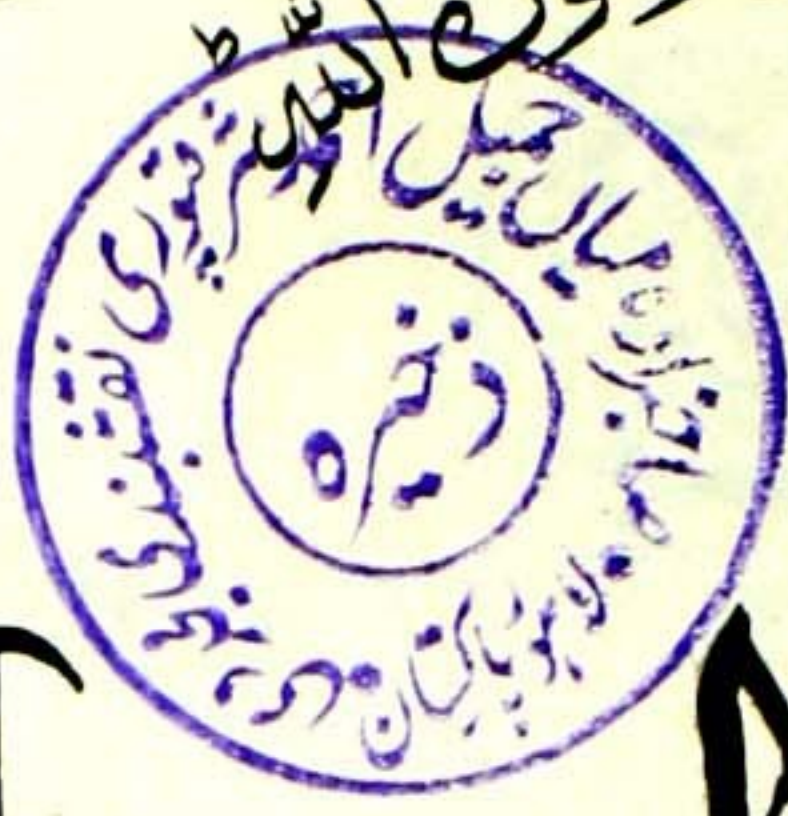 اللہ
صاحبزادہ میاں جمیل احمد شرقپوری نقشبندی مجددی
لاہور پاکستان
ذخیرہ